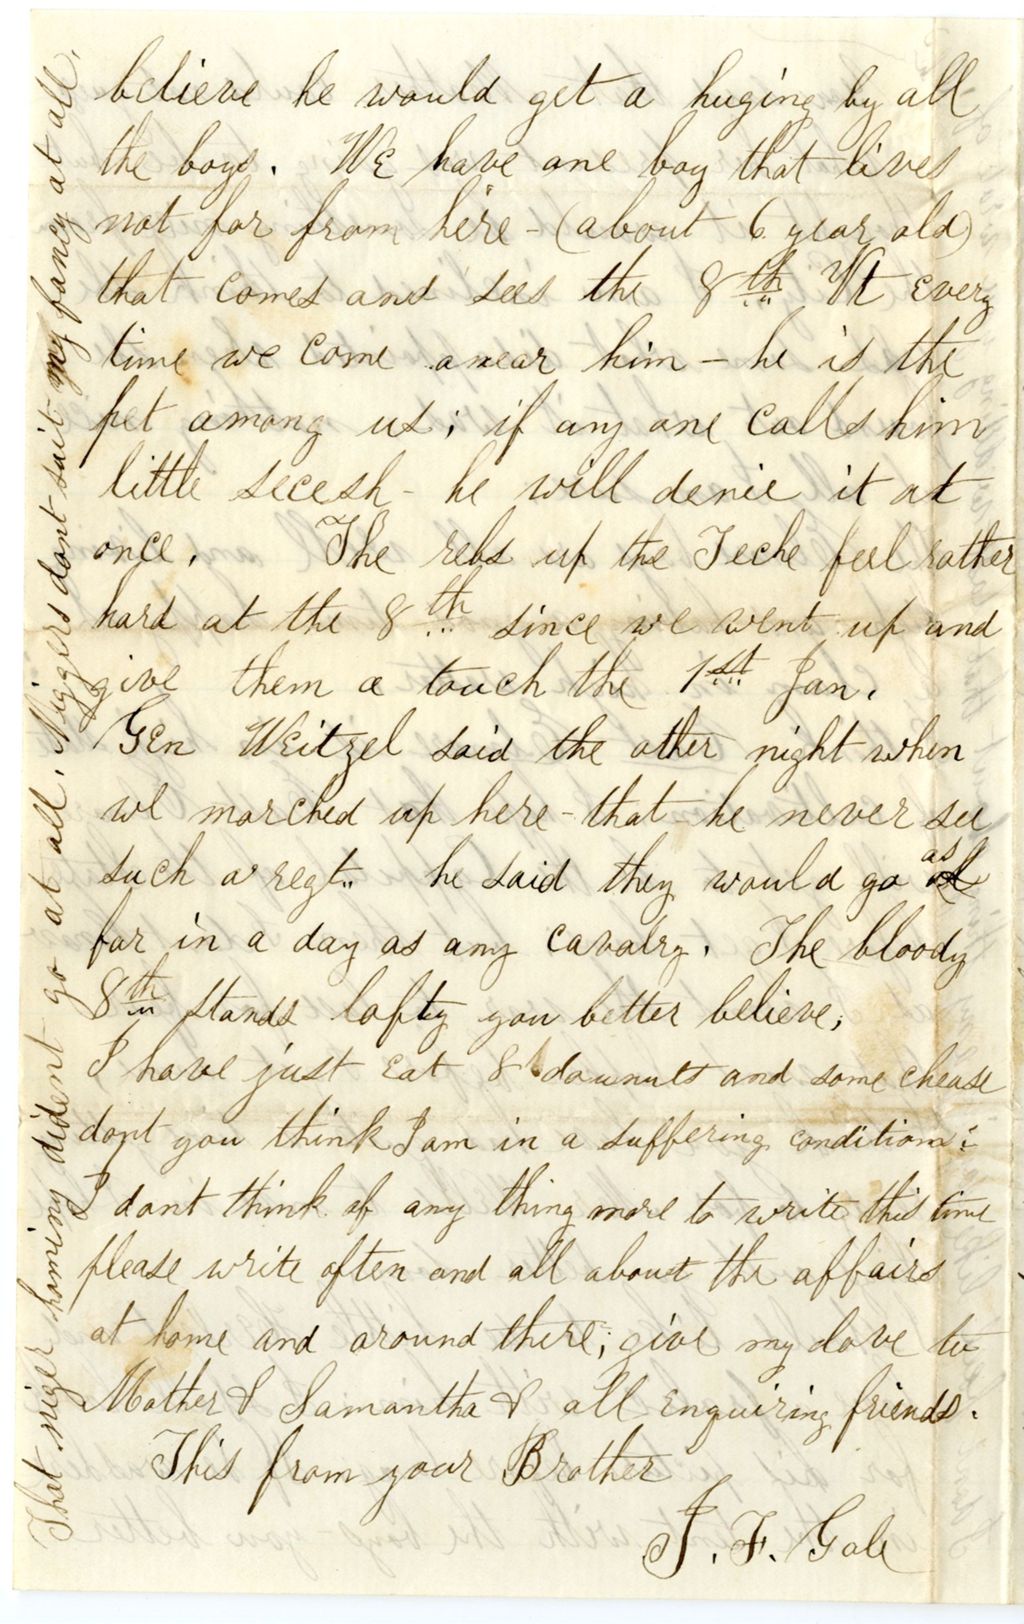 believe he would get a huging by all
the boys. We have one boy that lives
not far from here - (about 6 year old)
that comes and sees the 8th Vt every
time we come anear him - he is the
pet among us; if any one calls him
little secesh - he will denie it at
once. The rebs up the Teche feel rather
hard at the 8th since we went up and
give them a touch the 1st Jan.
Gen Weitzel said the other night when
we marched up here - that he never see
such a regt. he said they would go as
far in a day as any cavalry. The bloody
8th stands lofty you better believe;
I have just eat 8 dounuts and some chease
dont you think I am in a suffering condition:
I dont think of any thing more to write this time
please write often and all about the affairs
at home and around there; give my love to
Mother & Samantha & all enquiring friends.
This from your Brother
J. F. Gale
That niger homing dident go at all. Niggers dont suit my fancy at all.